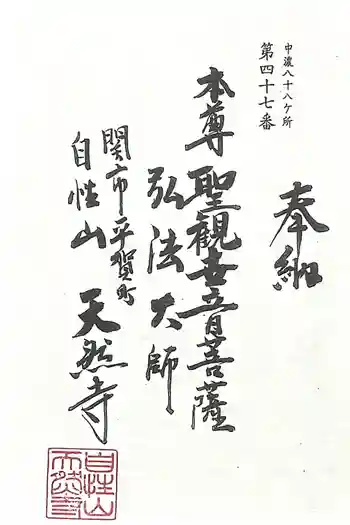 中濃八十八ケ所
第四十七番
奉納
本尊聖観世音菩薩
弘法大師
関市平賀町
自性山天然寺
自性山
天然寺